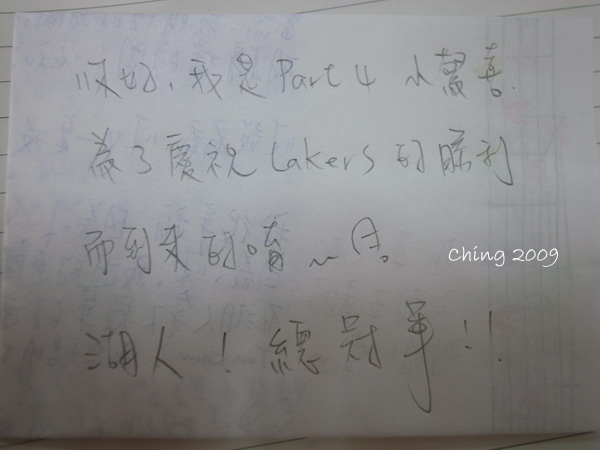 你好，我是Part 4 小驚喜.
為了慶祝Lakers的勝利
而到來的唷~
Ching 2009
湖人！總冠軍!!